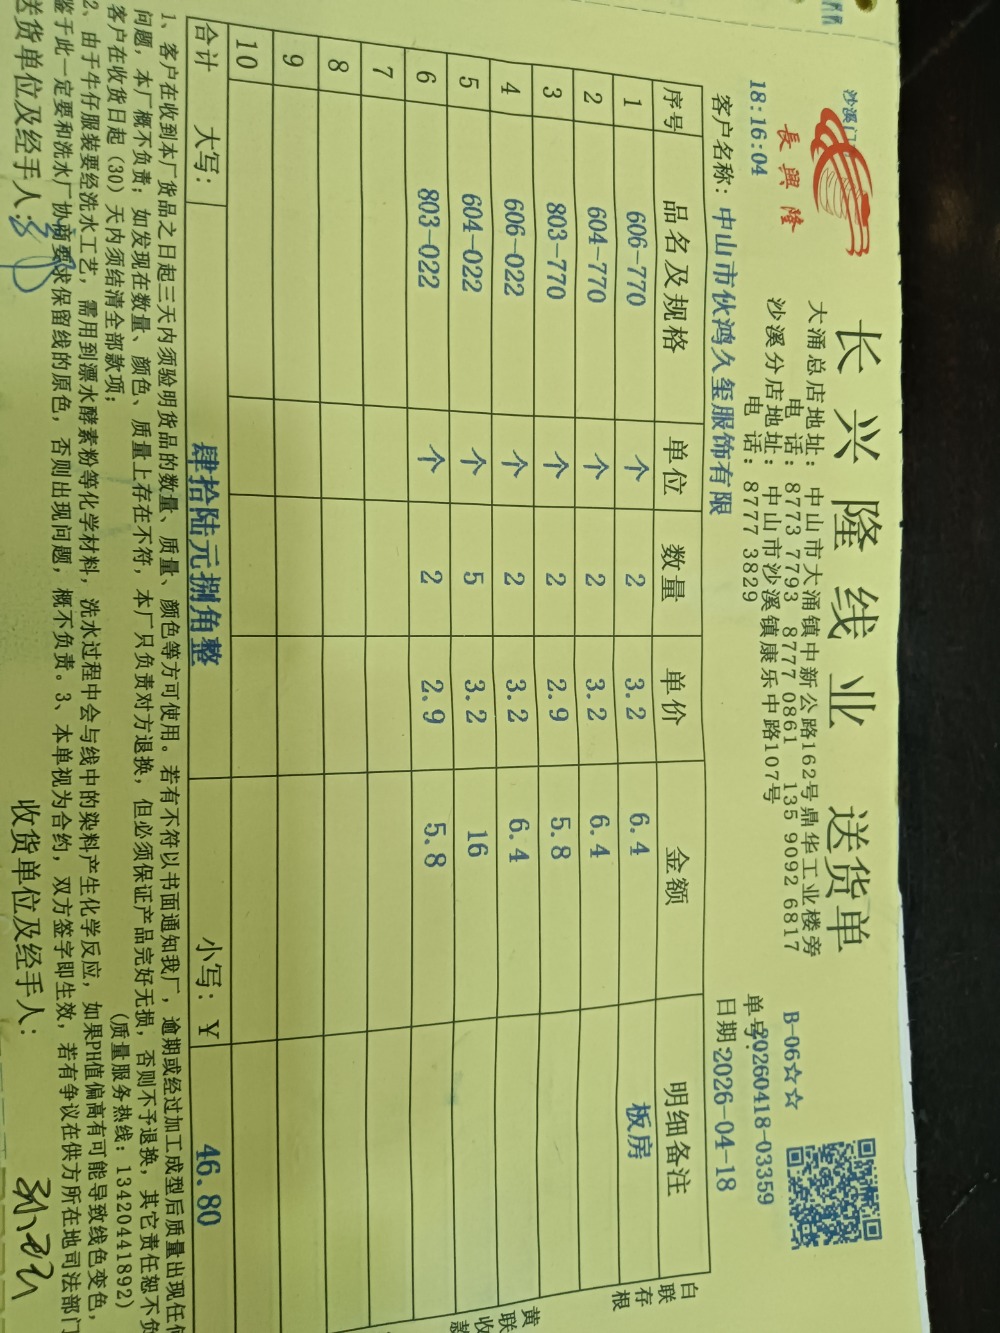 沙溪门
長興隆
长兴隆线业 送货单
大涌总店地址：中山市大涌镇中新公路162号鼎华工业楼旁
电 话：8773 7793 8777 0861 135 9092 6817
沙溪分店地址：中山市沙溪镇康乐中路107号
电 话：8777 3829
18:16:04
B-06☆☆
单号:20260418-03359
客户名称：中山市伙鸿久玺服饰有限
日期:2026-04-18
序号 品名及规格 单位 数量 单价 金额 明细备注
1 606-770 个 2 3.2 6.4 板房
2 604-770 个 2 3.2 6.4
3 803-770 个 2 2.9 5.8
4 606-022 个 2 3.2 6.4
5 604-022 个 5 3.2 16
6 803-022 个 2 2.9 5.8
7
8
9
10
合计 大写： 肆拾陆元捌角整 小写：￥ 46.80
白联存根
黄联收款
1、客户在收到本厂货品之日起三天内须验明货品的数量、质量、颜色等方可使用。若有不符以书面通知我厂，逾期或经过加工成型后质量出现任何
问题，本厂概不负责；如发现在数量、颜色、质量上存在不符，本厂只负责对方退换，但必须保证产品完好无损，否则不予退换，其它责任恕不负
客户在收货日起（30）天内须结清全部款项； （质量服务热线：13420441892）
2、由于牛仔服装要经洗水工艺，需用到漂水酵素粉等化学材料，洗水过程中会与线中的染料产生化学反应，如果PH值偏高有可能导致线色变色，
鉴于此一定要和洗水厂协商要求保留线的原色，否则出现问题，概不负责。3、本单视为合约，双方签字即生效，若有争议在供方所在地司法部门
送货单位及经手人： 收货单位及经手人：